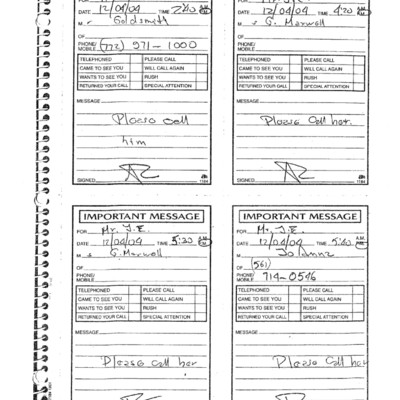 DATE 12/04/04 TIME 2:20 A.M. P.M.
M. Goldsmith
OF
PHONE/ MOBILE (772) 971-1000
TELEPHONED PLEASE CALL
CAME TO SEE YOU WILL CALL AGAIN
WANTS TO SEE YOU RUSH
RETURNED YOUR CALL SPECIAL ATTENTION
MESSAGE
Please call
him
SIGNED 1184
DATE 12/04/04 TIME 4:20 A.M. P.M.
M. G. Maxwell
OF
PHONE/ MOBILE
TELEPHONED PLEASE CALL
CAME TO SEE YOU WILL CALL AGAIN
WANTS TO SEE YOU RUSH
RETURNED YOUR CALL SPECIAL ATTENTION
MESSAGE
Please call her.
SIGNED 1184
IMPORTANT MESSAGE
FOR Mr. J.E.
DATE 12/04/04 TIME 5:30 A.M. P.M.
M. G. Maxwell
OF
PHONE/ MOBILE
TELEPHONED PLEASE CALL
CAME TO SEE YOU WILL CALL AGAIN
WANTS TO SEE YOU RUSH
RETURNED YOUR CALL SPECIAL ATTENTION
MESSAGE
Please call her
IMPORTANT MESSAGE
FOR Mr. J.E.
DATE 12/04/04 TIME 5:40 A.M. P.M.
M Johanna
OF (561)
PHONE/ MOBILE 714-0546
TELEPHONED PLEASE CALL
CAME TO SEE YOU WILL CALL AGAIN
WANTS TO SEE YOU RUSH
RETURNED YOUR CALL SPECIAL ATTENTION
MESSAGE
Please call her